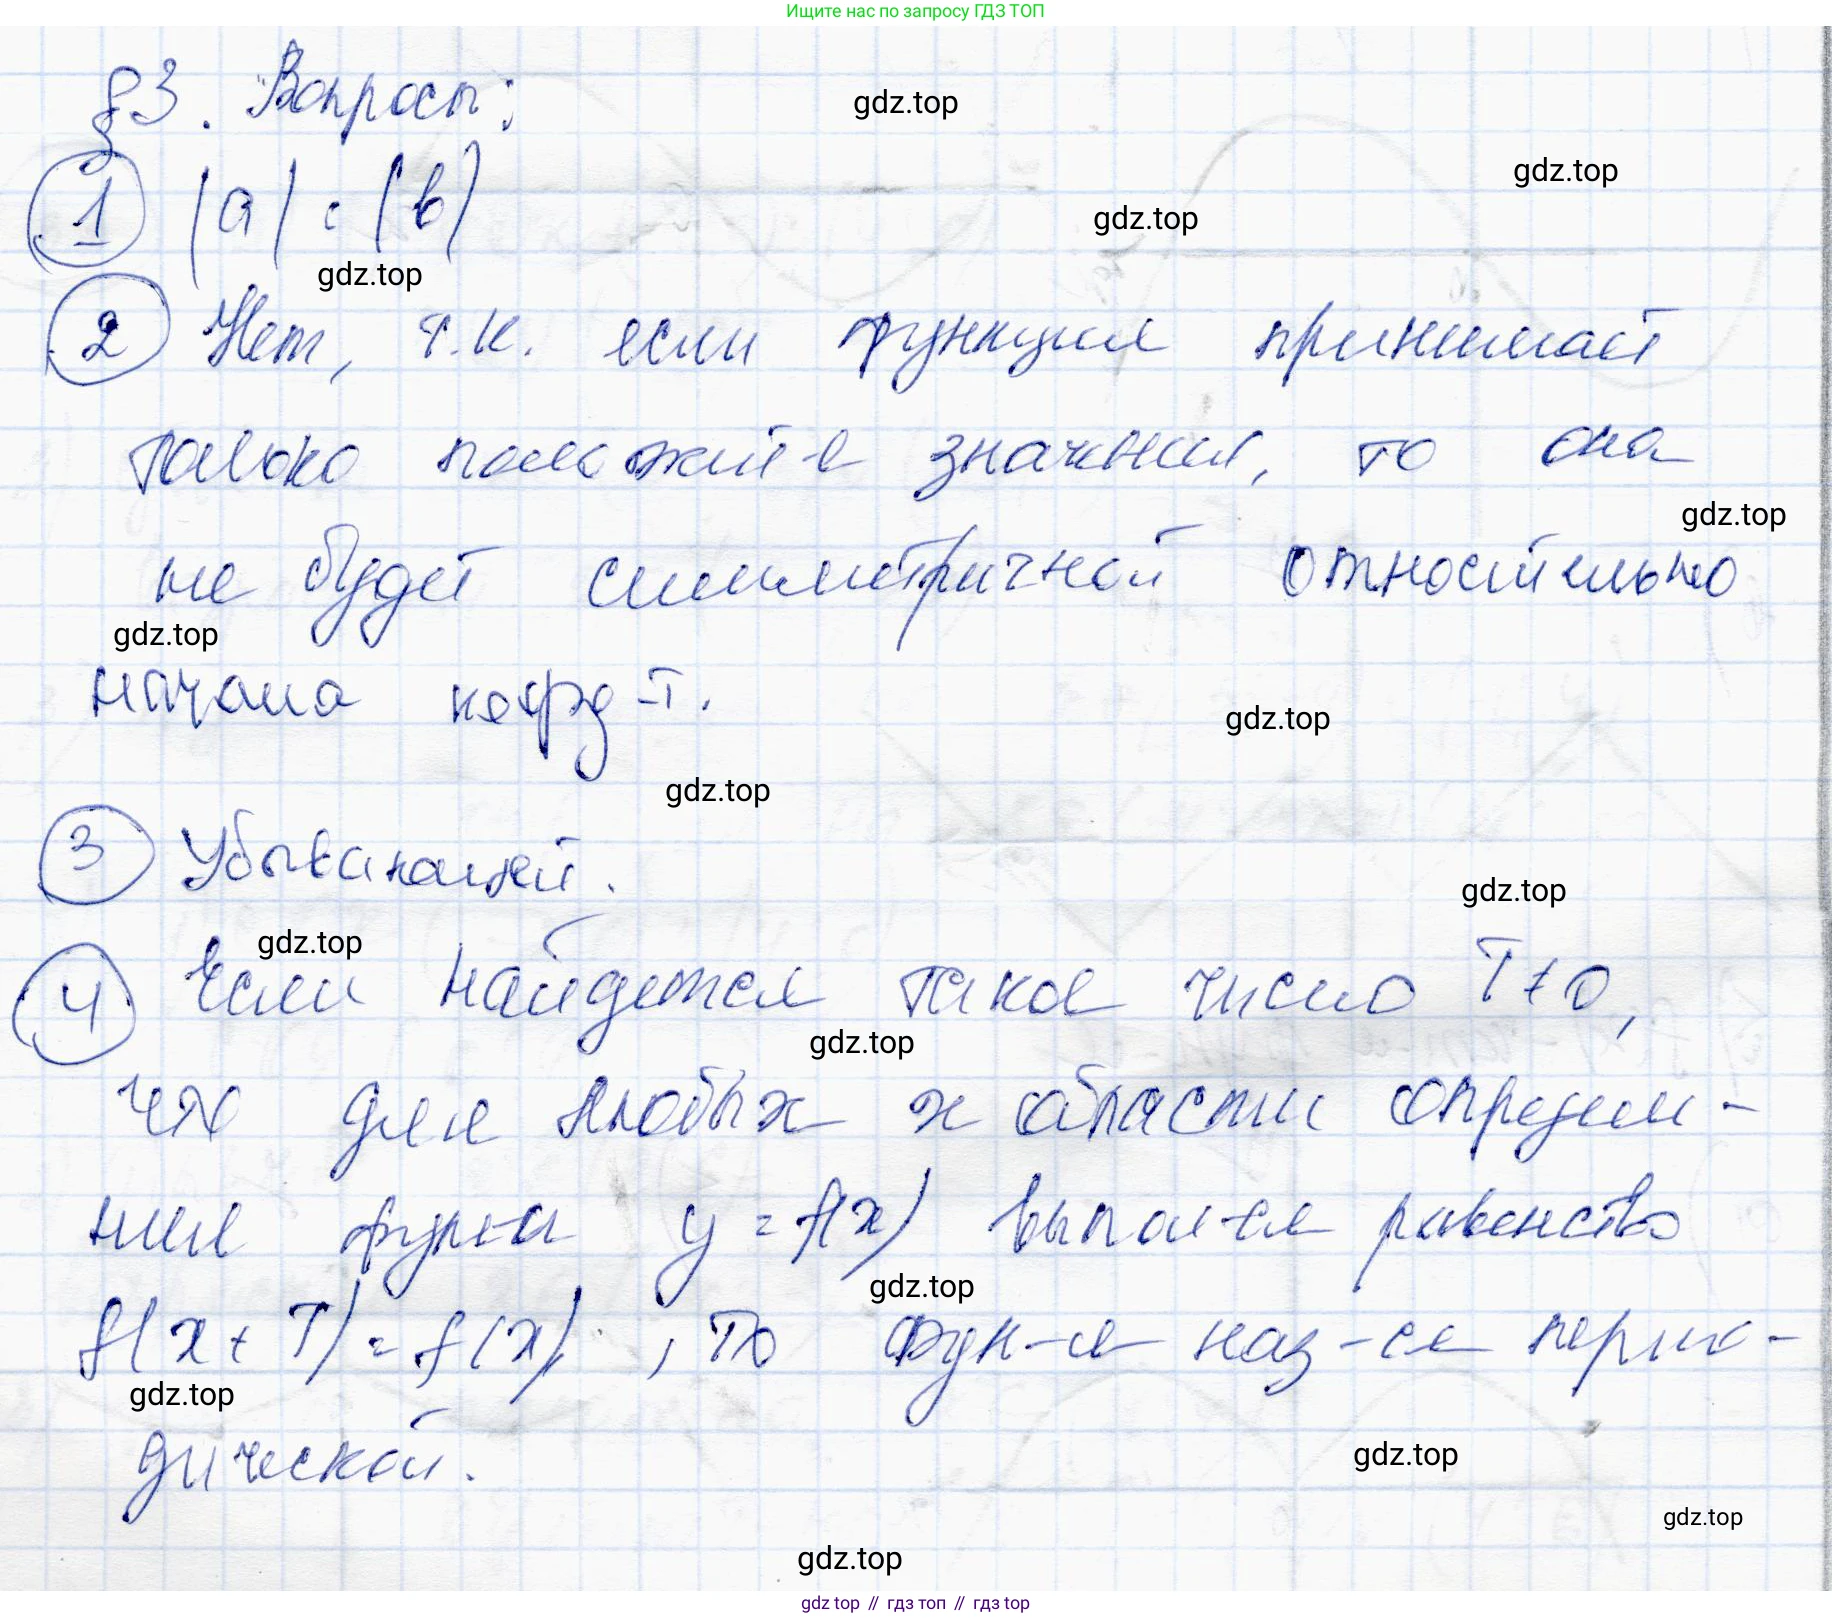 Ищите нас по запросу ГДЗ ТОП
§3. Вопросы:
gdz.top
gdz.top
1 |a| = |b|
gdz.top
gdz.top
2 Нет, т.к. если функция принимает
только полож-е значения, то она
gdz.top
не будет симметричной относительно
gdz.top
начала коорд-т.
gdz.top
gdz.top
3 Убывающей.
gdz.top
gdz.top
4 Если найдется такое число T≠0,
gdz.top
что для любых x области определ-
ния функ-и y = f(x) выпол-ся равенство
gdz.top
f(x+T) = f(x), то фун-я наз-ся перио-
gdz.top
дической.
gdz.top
gdz.top
gdz.top
gdz top // гдз топ // гдз top